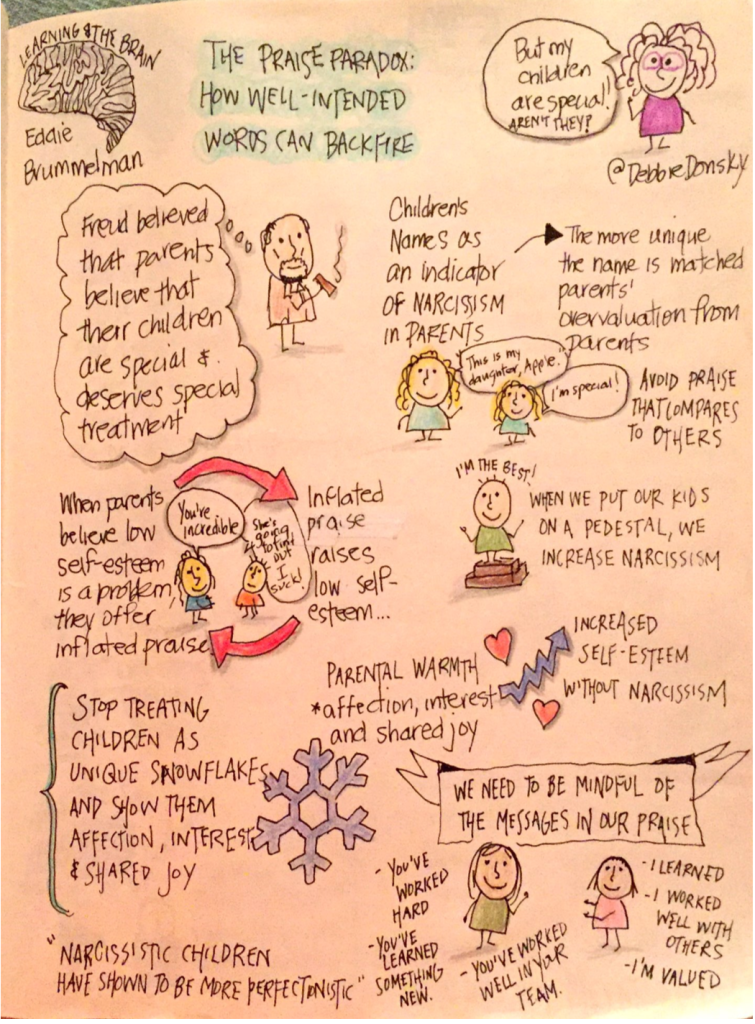 LEARNING & THE BRAIN
Eddie
Brummelman
THE PRAISE PARADOX:
HOW WELL-INTENDED
WORDS CAN BACKFIRE
But my
children
are special!
AREN'T THEY?
@DebbieDonsky
Freud believed
that parents
believe that
their children
are special &
deserves special
treatment
Children's
Names as
an indicator
OF NARCISSISM
IN PARENTS
The more unique
the name is matched
parents'
overvaluation from
parents
"This is my
daughter, Apple."
I'm special!
AVOID PRAISE
THAT COMPARES
TO OTHERS
When parents
believe low
self-esteem
is a problem,
they offer
inflated praise
You're
incredible
She's
going
to find
out
I
suck!
Inflated
praise
raises
low self-
esteem...
I'M THE BEST!
WHEN WE PUT OUR KIDS
ON A PEDESTAL, WE
INCREASE NARCISSISM
PARENTAL WARMTH
*affection, interest
and shared joy
INCREASED
SELF-ESTEEM
WITHOUT NARCISSISM
STOP TREATING
CHILDREN AS
UNIQUE SNOWFLAKES
AND SHOW THEM
AFFECTION, INTEREST
& SHARED JOY
WE NEED TO BE MINDFUL OF
THE MESSAGES IN OUR PRAISE
- YOU'VE
WORKED
HARD
- YOU'VE
LEARNED
SOMETHING
NEW.
- YOU'VE WORKED
WELL IN YOUR
TEAM.
- I LEARNED
- I WORKED
WELL WITH
OTHERS
- I'M VALUED
"NARCISSISTIC CHILDREN
HAVE SHOWN TO BE MORE PERFECTIONISTIC"